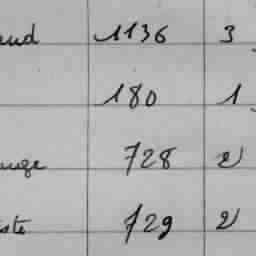 aud 1136 3
180 1
uge 728 2
iste 729 2